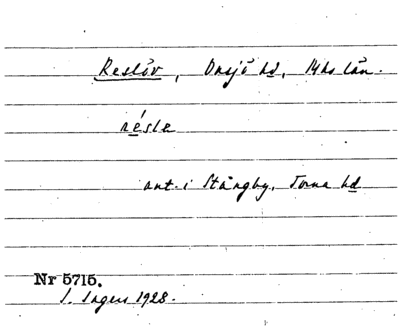 Reslöv, Onsjö hd, Mhs län.
résle
ant. i Stångby, Torna hd
Nr 5715.
I. Ingers 1928.